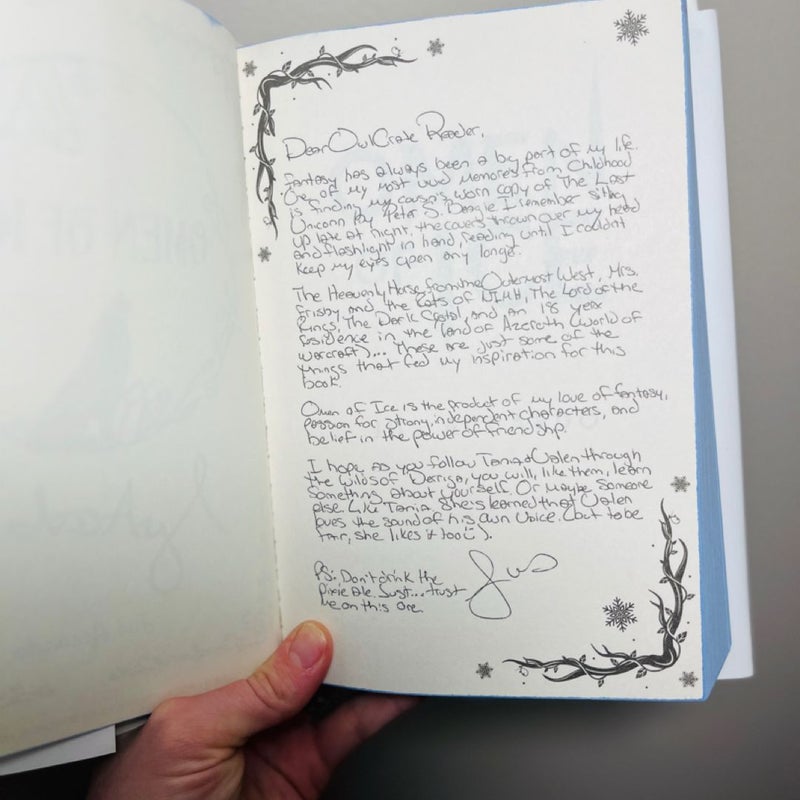 Dear OwlCrate Reader,
Fantasy has always been a big part of my life.
One of my most vivid memories from Childhood
is finding my cousin's worn copy of The Last
Unicorn by Peter S. Beagle I remember sitting
up late at night, the covers thrown over my head
and flashlight in hand, reading until I couldn't
keep my eyes open any longer.
The Heavenly Horse from the Outermost West, Mrs.
Frisby and the Rats of NIMH, The Lord of the
Rings, The Dark Crystal, and an 18 year
residence in the land of Azeroth (World of
Warcraft)... These are just some of the
things that fed my inspiration for this
book.
Omen of Ice is the product of my love of fantasy,
passion for strong, independent characters, and
belief in the power of friendship.
I hope as you follow Tania & Valen through
the wilds of, you will, like them, learn
something about yourself. Or maybe someone
else. Like Tania. She's learned that Valen
loves the sound of his own voice. (but to be
fair, she likes it too).
PS: Don't drink the
Pixie Ale. Just... trust
me on this one.